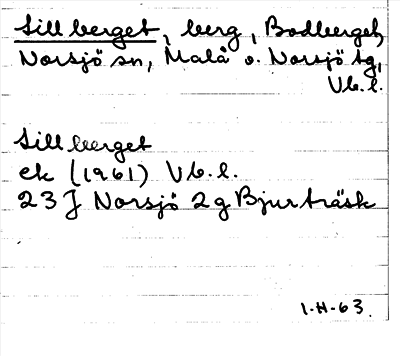 Sillberget, berg, Bodberget,
Norsjö sn, Malå o. Norsjö tg,
Vb. l.
Sillberget
ek (1961) Vb. l.
23 J Norsjö 2 g Bjurträsk
1-H-63.